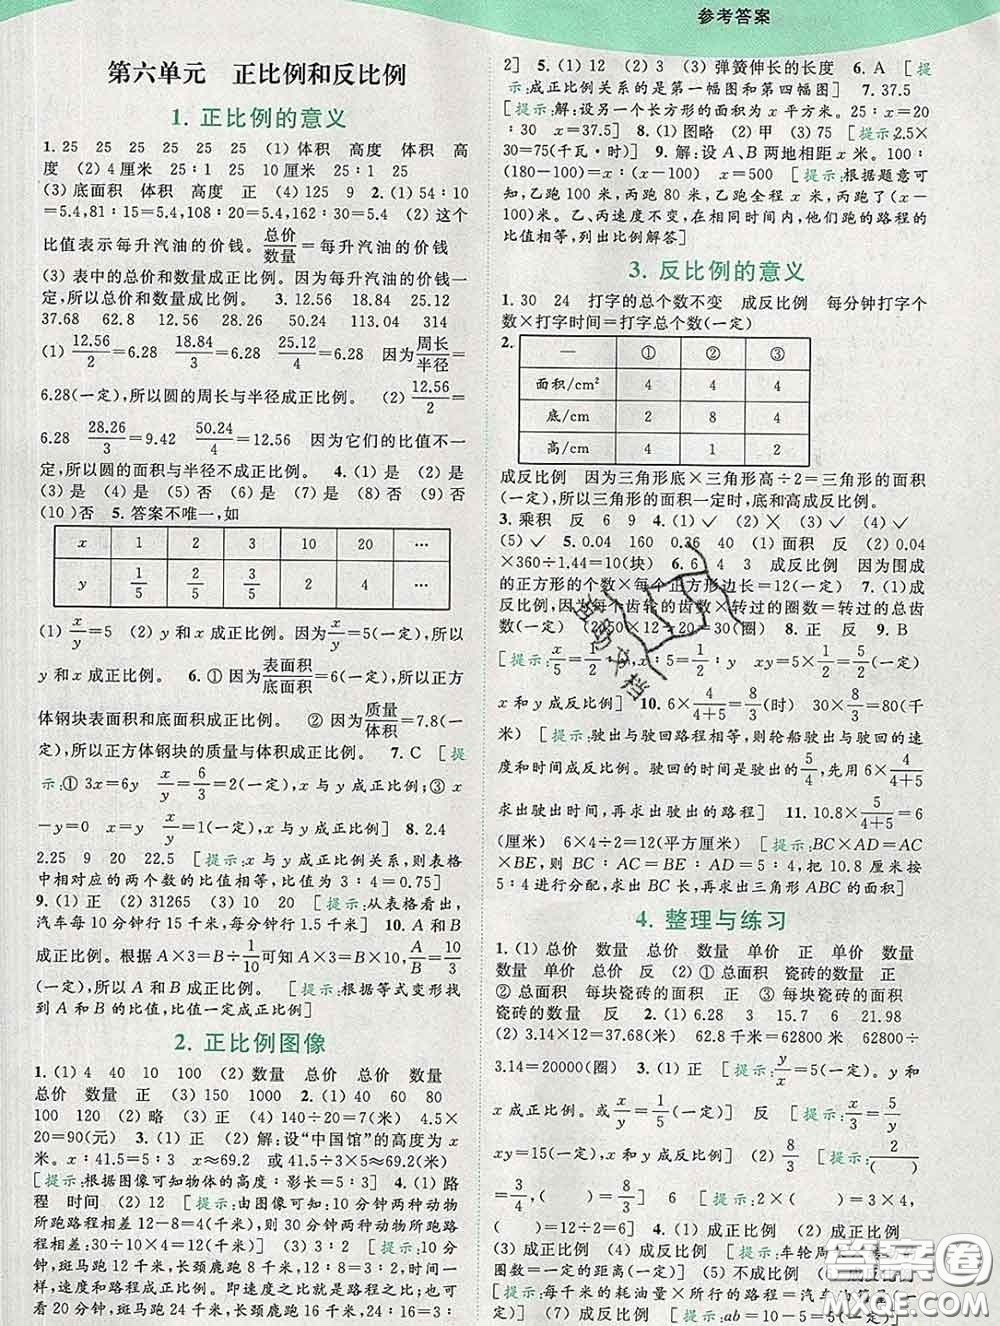 参考答案
第六单元 正比例和反比例
1. 正比例的意义
1. 25 25 25 25 25 (1) 体积 高度 体积 高
度 (2) 4厘米 25∶1 25 10厘米 25∶1 25
(3) 底面积 体积 高度 正 (4) 125 9 2. (1) 54∶10
=5.4,81∶15=5.4,108∶20=5.4,162∶30=5.4 (2) 这个
比值表示每升汽油的价钱。总价/数量=每升汽油的价钱
(3) 表中的总价和数量成正比例。因为每升汽油的价钱一
定,所以总价和数量成比例。 3. 12.56 18.84 25.12
37.68 62.8 12.56 28.26 50.24 113.04 314
(1) 12.56/2=6.28 18.84/3=6.28 25.12/4=6.28 因为周长/半径=
6.28(一定),所以圆的周长与半径成正比例。 (2) 12.56/2=
6.28 28.26/3=9.42 50.24/4=12.56 因为它们的比值不一
定,所以圆的面积与半径不成正比例。 4. (1) 是 (2) 是
(3) 是 (4) 是 (5) 否 (6) 否 (7) 否 (8) 否 (9) 否
(10) 否 5. 答案不唯一,如
x 1 2 3 10 20 …
y 1/5 2/5 3/5 2 4 …
(1) x/y=5 (2) y和x成正比例。因为x/y=5(一定),所以
y和x成正比例。 6. ① 因为表面积/底面积=6(一定),所以正方
体钢块表面积和底面积成正比例。 ② 因为质量/体积=7.8(一
定),所以正方体钢块的质量与体积成正比例。 7. C [提
示:① 3x=6y x/y=6/3=2(一定),x与y成正比例;③ x
-y=0 x=y x/y=1(一定),x与y成正比例] 8. 2.4
2.25 9 20 22.5 [提示:x与y成正比例关系,则表格
中相对应的两个数的比值相等,比值为3∶4=0.75]
9. (1) 正 (2) 31265 (3) 10 20 [提示:从表格看出,
汽车每10分钟行15千米,每分钟行1.5千米] 10. A和B
成正比例。根据A×3=B÷1/10可知A×3=B×10,A/B=10/3
(一定),所以A和B成正比例。 [提示:根据等式变形找
到A和B的比值,比值一定成正比例]
2. 正比例图像
1. (1) 4 40 10 100 (2) 数量 总价 总价 数量
总价 数量 正 (3) 150 1000 2. (1) 40 60 80
100 120 (2) 略 (3) 正 (4) 140÷20=7(米) 4.5×
20=90(元) 3. (1) 正 (2) 解:设“中国馆”的高度为x
米。x∶41.5=5∶3 x≈69.2 或41.5÷3×5≈69.2(米)
[提示:根据图像可知物体的高度∶影长=5∶3] 4. (1) 路
程 时间 (2) 12 [提示:由图像可知,10分钟两种动物
所跑路程相差12-8=4(千米),则30分钟两种动物所跑路程
相差:30÷10×4=12(千米)] (3) 3∶2 [提示:10分钟
时,斑马跑12千米,长颈鹿跑8千米,12∶8=3∶2,在同一时
间里,速度和路程成正比例。即速度之比就是路程之比;也可
看图形中20分钟,斑马跑24千米,长颈鹿跑16千米,24∶16=3∶
2] 5. (1) 12 (2) 3 (3) 弹簧伸长的长度 6. A [提
示:成正比例关系的是第一幅图和第四幅图] 7. 37.5
[提示:解:设另一个长方形的面积为x平方米。25∶x=20
∶30 x=37.5] 8. (1) 图略 (2) 甲 (3) 75 [提示:2.5×
30=75(千瓦·时)] 9. 解:设A、B两地相距x米。100∶
(180-100)=x∶(x-100) x=500 [提示:根据题意可
知,乙跑100米,丙跑80米,乙跑全程x米,丙跑了(x-
100)米。乙、丙速度不变,在相同时间内,他们跑的路程的
比值相等,列出比例解答]
3. 反比例的意义
1. 30 24 打字的总个数不变 成反比例 每分钟打字个
数×打字时间=打字总个数(一定)
2.
— ① ② ③
面积/cm² 4 4 4
底/cm 2 8 4
高/cm 4 1 2
成反比例 因为三角形底×三角形高÷2=三角形的面积
(一定),所以三角形的面积一定时,底和高成反比例。
3. 乘积 反 6 9 4. (1) ✓ (2) ✕ (3) ✓ (4) ✓
(5) ✓ 5. 0.04 160 0.36 40 (1) 面积 反 (2) 0.04
×360÷1.44=10(块) 6. 6 4 3 成反比例 因为围成
的正方形的个数×每个正方形边长=12(一定) 7. (1) 成
反比例,因为每个齿轮的齿数×转过的圈数=转过的总齿
数(一定) (2) 50×12÷20=30(圈) 8. 正 反 9. B
[提示:x/5=1/2÷y,x∶5=1/2∶y xy=5×1/2=5/2(一定)
x和y成反比例] 10. 6×4/(4+5)=8/3(时) 30×8/3=80(千
米) [提示:驶出与驶回路程相等,则轮船驶出与驶回的速
度和时间成反比例。驶回的时间是驶出的5/4,先用6×4/(4+5)
求出驶出时间,再求出驶出的路程] 11. 10.8×5/(4+5)=6
(厘米) 6×4÷2=12(平方厘米) [提示:BC×AD=AC
×BE,则BC∶AC=BE∶AD=5∶4,把10.8厘米按
5∶4进行分配,求出BC长,再求出三角形ABC的面积]
4. 整理与练习
1. (1) 总价 数量 总价 数量 单价 正 单价 数量
数量 单价 总价 反 (2) ① 总面积 瓷砖的数量 正
② 总面积 每块瓷砖的面积 正 ③ 每块瓷砖的面积
瓷砖的数量 反 2. (1) 6.28 3 15.7 6 21.98
(2) 3.14×12=37.68(米) 62.8千米=62800米 62800÷
3.14=20000(圈) 3. (1) 正 [提示:y/x=5(一定),y和
x成正比例。或x/y=1/5(一定)] 反 [提示:3/x=y/5
xy=15(一定),x和y成反比例] (2) 8/3 [提示:2/( )
=3/4,( )=8/3] 4. 6 [提示:2×( )=3×4,
( )=12÷2=6] 5. (1) 成正比例 (2) 成正比例
(3) 成正比例 (4) 成反比例 [提示:车轮周长×
圈数=一定的距离(一定)] (5) 不成比例 (6) 成反比例
[提示:每千米的耗油量×所行的路程=汽车
一定)] (7) 成反比例 [提示:ab=10-5=5(一定)]
答案卷
MXQE.COM